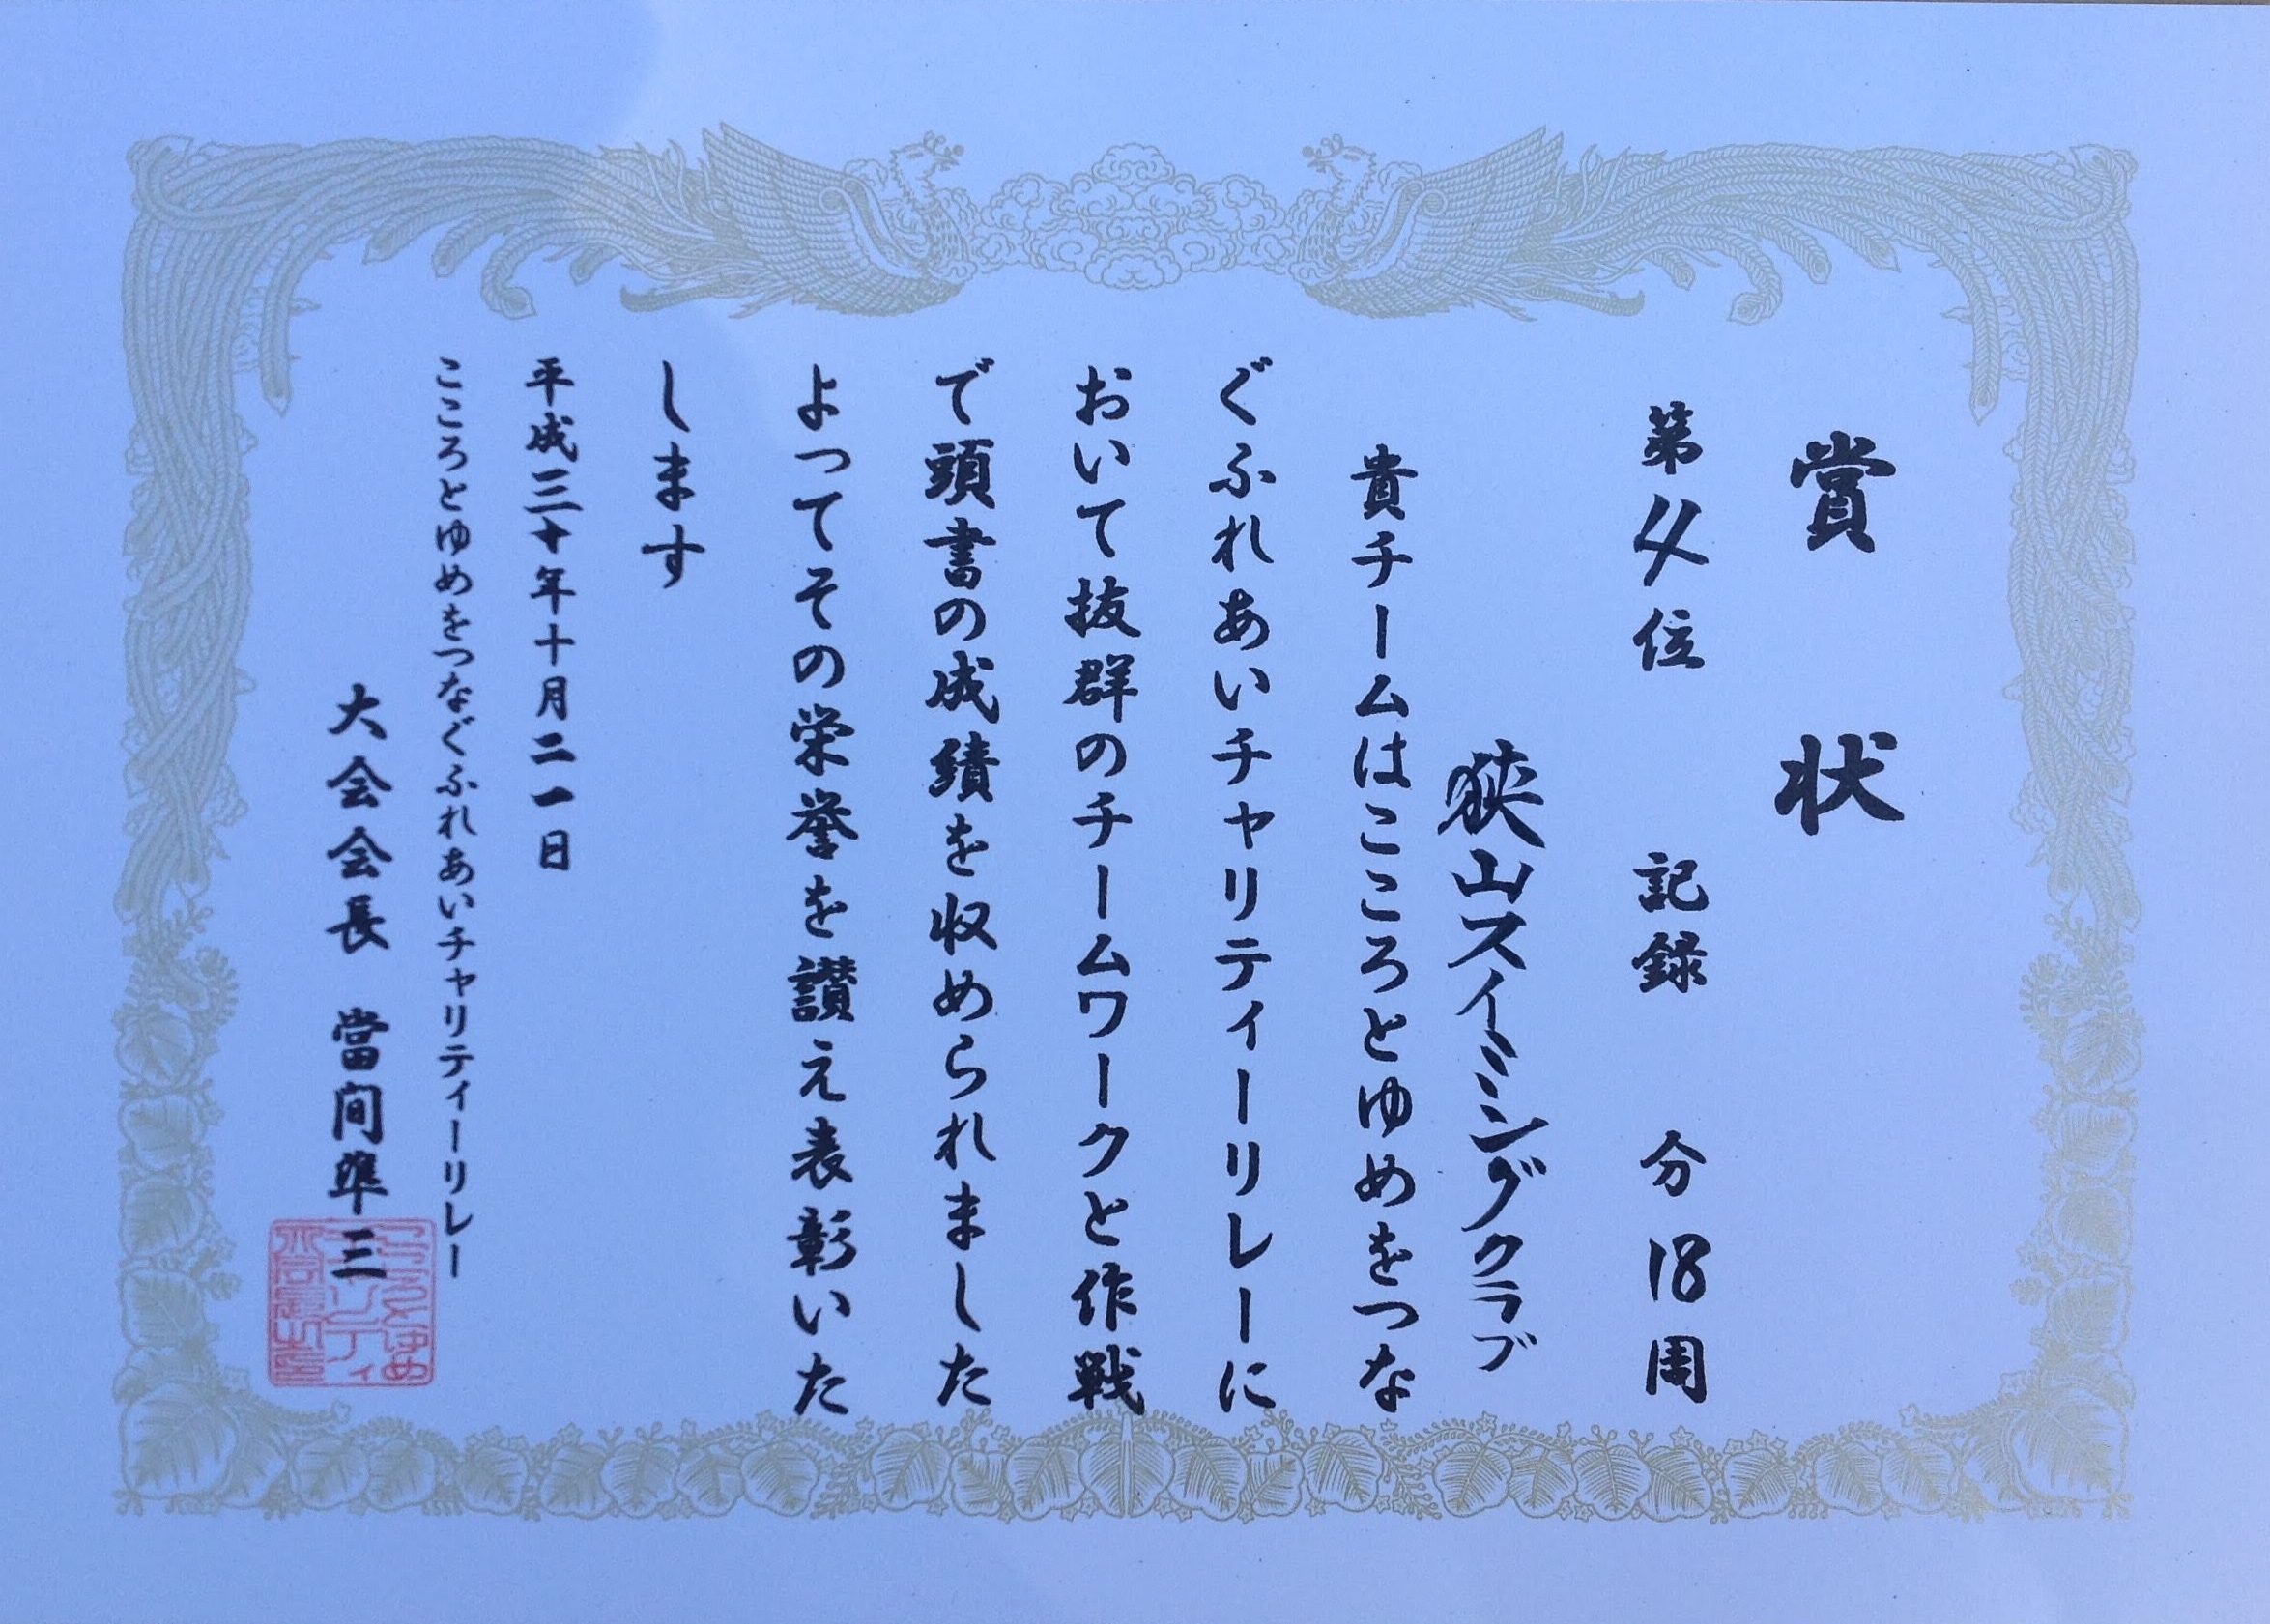 賞状
第 位 記録 分18周
狭山スイミングクラブ
貴チームはこころとゆめをつな
ぐふれあいチャリティーリレーに
おいて抜群のチームワークと作戦
で頭書の成績を収められました
よってその栄誉を讃え表彰いた
します
平成三十年十月二一日
こころとゆめをつなぐふれあいチャリティーリレー
大会会長 當間準三
こころとゆめ
チャリティ
大会長之印